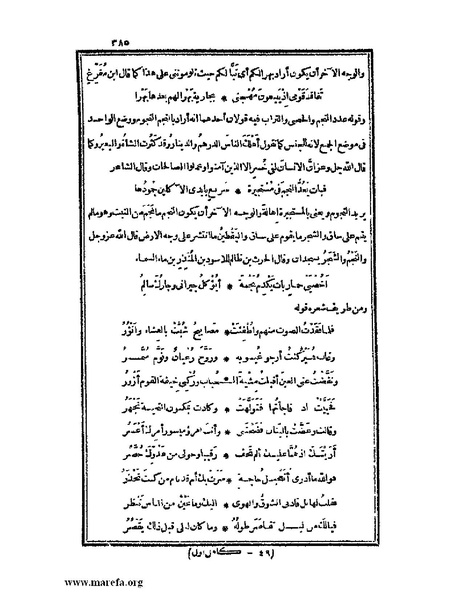 ٣٨٥
والوجه الآخر أن يكون أراد بهرا لكم أى تبًّا لكم حيث تلوموننى على هذا كما قال ابن مُفَرِّغٍ
تفاقد قومى إذ يبيعون مُهجتى * بجارية بهرا لهم بعدها بهرا
وقوله عدد النجم والحصى والتراب فيه قولان أحدهما أنه أراد بالنجم النجوم ووضع الواحد
فى موضع الجمع لانه للجنس كما تقول أهلك الناسَ الدرهمُ والدينارُ وقد كثرت الشاةُ والبعيرُ وكما
قال الله جل وعز ان الانسان لفى خُسرٍ الا الذين آمنوا وعملوا الصالحات وقال الشاعر
فباتت تعدُّ النجم فى مُستَحيرة * سريعٍ بأيدى الآكلين جُمودُها
يريد النجوم ويعنى بالمستحيرة إهالةً والوجه الآخر أن يكون النجم ما نجمَ من النبت وهو ما لم
يقم على ساق والشجر ما يقوم على ساق واليقطين ما انتشر على وجه الارض قال الله عز وجل
والنَّجمُ والشَّجَرُ يسجدان وقال الحرث بن ظالم للأسود بن المُنذِر بن ماء السماء
أخُصيَى حمار بات يكدِمُ نجمةً * أتُؤكل جيرانى وجارك سالمُ
ومن طريف شعره قوله
فلما فقدتُ الصوت منهم وأُطفِئت * مصابيحُ شُبَّت بالعشاء وأنؤُرُ
وغاب قُمَيرٌ كنتُ أرجو غيوبه * وروَّحَ رُعيانٌ ونَوَّمَ سُمَّرُ
ونفَّضتُ عنى العينَ أقبلتُ مِشيةَ الـ * ـحُبابِ وركنى خيفةَ القوم أزورُ
فحيَّيتُ اذ فاجأتُها فتولَّهت * وكادت بمكنون التحية تجهَرُ
وقالت وعضَّت بالبنان فضحتنى * وأنت امرؤٌ ميسور أمرك أعسرُ
أريتَك اذ هُنَّا عليك ألم تخف * رقيبا وحولى من عدوّك حُضَّرُ
فوالله ما أدرى أتعجيل حاجة * سَرَت بك أم قد نام من كنتَ تحذَرُ
فقلت لها بل قادنى الشوق والهوى * اليك وما عينٌ من الناس تنظر
فيالك من ليلٍ تقاصر طولُهُ * وما كان ليلى قبل ذلك يقصُرُ
(٤٩ - كامل اول)
www.marefa.org